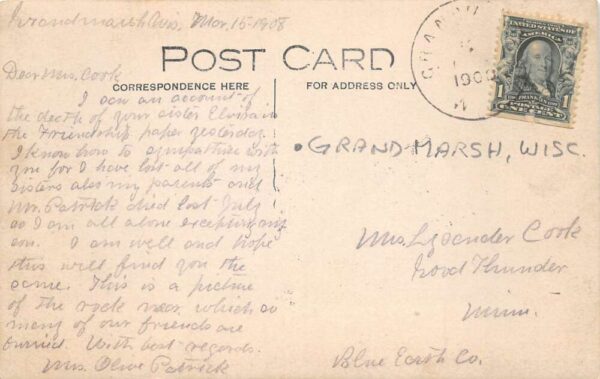 Grandmarsh Wis, Mar, 15-1908
POST CARD
CORRESPONDENCE HERE
FOR ADDRESS ONLY
Dear Mrs. Cook
I saw an account of
the death of your sister Elvira in
the Friendship paper yesterday.
I know how to sympathize with
you for I have lost all of my
sisters also my parents and
Mr. Patrick died last July
so I am all alone excepting my
son. I am well and hope
this will find you the
same. This is a picture
of the rock near which so
many of our friends are
burried. With best regards.
Mrs. Olive Patrick
GRAND
1908
UNITED STATES OF
AMERICA
1 1
ONE CENT
• GRAND MARSH, WISC.
Mrs. Lysander Cook
Good Thunder
Minn.
Blue Earth Co.